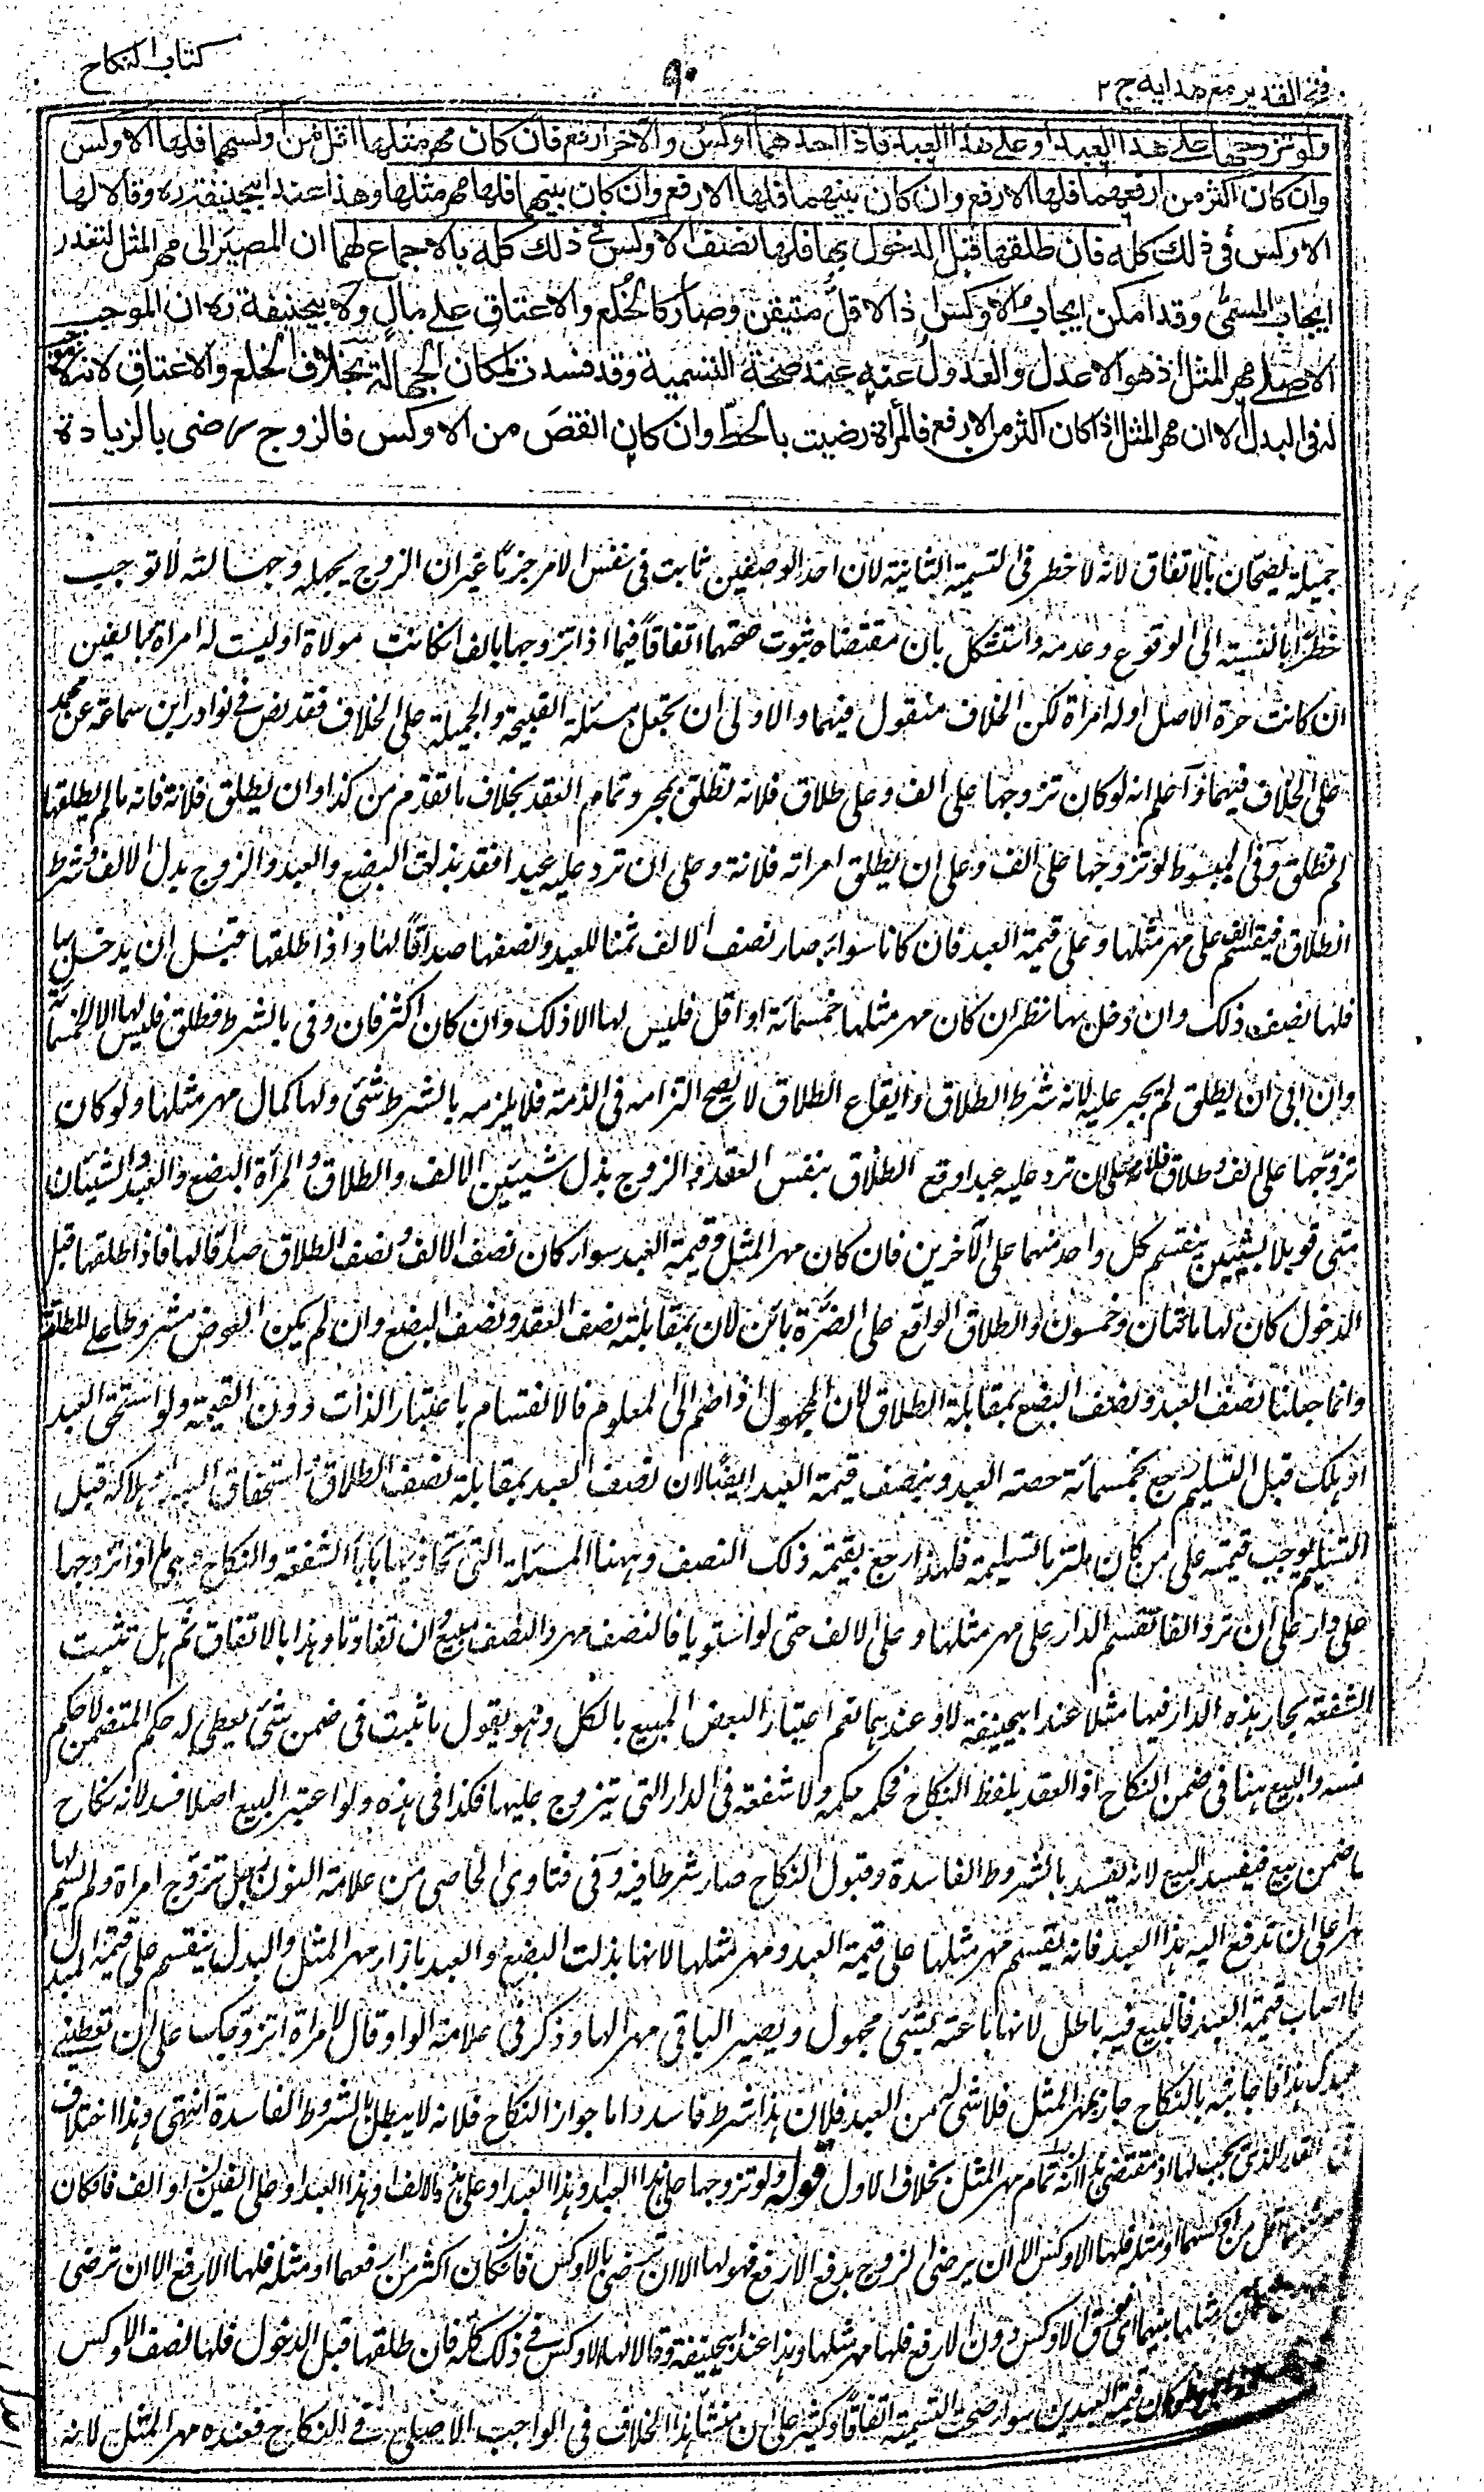 فتح القدير مع هدايه ج ٢
٩٠
كتاب النكاح
ولو تزوجها على هذا العبد او على هذا العبد فاذا احدهما اوكس والآخر ارفع فان كان مهر مثلها اقل من اوكسهما فلها الاوكس
وان كان اكثر من ارفعهما فلها الارفع وان كان بينهما فلها مهر مثلها وهذا عند ابيحنيفة ره وقالا لها
الاوكس فى ذلك كله فان طلقها قبل الدخول بها فلها نصف الاوكس فى ذلك كله بالاجماع لهما ان المصير الى مهر المثل لتعذر
ايجاب المسمى وقد امكن ايجاب الاوكس اذ الاقل متيقن وصار كالخلع والاعتاق على مال ولابيحنيفة ره ان الموجب
الاصلى مهر المثل اذ هو الاعدل والعدول عنه عند صحة التسمية وقد فسدت لمكان الجهالة بخلاف الخلع والاعتاق لانه لا موجب
له فى البدل الا ان مهر المثل اذا كان اكثر من الارفع فالمرأة رضيت بالحط وان كان انقص من الاوكس فالزوج رضى بالزيادة
جميلة يصحان بالاتفاق لانه لا خطر فى التسمية الثانية لان احد الوصفين ثابت فى نفس الامر جزما غير ان الزوج يجهله وجهالته لا توجب
خطرا بالنسبة الى الوقوع وعدمه واستشكل بان مقتضاه ثبوت صحتهما اتفاقا فيما اذا تزوجها بالف ان كانت مولاة او ليست له امرأة بالفين
ان كانت حرة الاصل او له امرأة لكن الخلاف منقول فيهما والاولى ان تجعل مسئلة القبيحة والجميلة على الخلاف فقد نص فى نوادر ابن سماعة عن محمد
على الخلاف فيهما واعلم انه لو كان تزوجها على الف وعلى طلاق فلانة تطلق بمجرد تمام العقد بخلاف ما تقدم من كذا وان يطلق فلانة فانه ما لم يطلقها
لم تطلق وفى المبسوط لو تزوجها على الف وعلى ان يطلق امرأته فلانة وعلى ان ترد عليه عبدا فقد بذلت البضع والعبد والزوج بذل الالف وشرط
الطلاق فينقسم الالف على مهر مثلها وعلى قيمة العبد فان كانا سواء صار نصف الالف ثمنا للعبد ونصفها صداقا لها واذا طلقها قبل ان يدخل بها
فلها نصف ذلك وان دخل بها نظر ان كان مهر مثلها خمسمائة او اقل فليس لها الا ذلك وان كان اكثر فان وفى بالشرط فطلق فليس لها الا الخمسمائة
وان ابى ان يطلق لم يجبر عليه لانه شرط الطلاق وايقاع الطلاق لا يصح التزامه فى الذمة فلا يلزمه بالشرط شئ ولها كمال مهر مثلها ولو كان
تزوجها على الف وطلاق فلانة على ان ترد عليه عبدا وقع الطلاق بنفس العقد والزوج بذل شيئين الالف والطلاق والمرأة البضع والعبد والشيئان
متى قوبلا بشيئين ينقسم كل واحد منهما على الآخرين فان كان مهر المثل وقيمة العبد سواء كان نصف الالف ونصف الطلاق صداقا لها فاذا طلقها قبل
الدخول كان لها مائتان وخمسون والطلاق الواقع على الضرة بائن لان بمقابلته نصف العقد ونصف البضع وان لم يكن العوض مشروطا على المطلقة
وانما جعلنا نصف العبد ونصف البضع بمقابلة الطلاق لان المجهول اذا ضم الى المعلوم فالانقسام باعتبار الذات دون القيمة ولو استحق العبد
او هلك قبل التسليم رجع بخمسمائة حصة العبد وبنصف قيمة العبد ايضا لان نصف العبد بمقابلة نصف الطلاق استحقاق العبد هلاكه قبل
التسليم يوجب قيمته على من كان ملتزما تسليمه فلهذا رجع بقيمة ذلك النصف وههنا المسئلة التى تحاذبها بابا الشفعة والنكاح وهى ما اذا تزوجها
على دار على ان ترد الفا تقسم الدار على مهر مثلها وعلى الالف حتى لو استويا فالنصف مهر والنصف مبيع وان تفاوتا وهذا بالاتفاق ثم هل تثبت
الشفعة لجار هذه الدار فيها مثلا عند ابيحنيفة لا وعندهما نعم اعتبار البعض المبيع بالكل وهو يقول ما ثبت فى ضمن شئ يعطى له حكم المتضمن لا حكم
نفسه والبيع هنا فى ضمن النكاح اذ العقد بلفظ النكاح فحكمه حكمه ولا شفعة فى الدار التى يتزوج عليها فكذا فى هذه ولو اعتبر البيع اصلا فسد لانه نكاح
ما ضمن بيع فيفسد البيع لانه يفسد بالشروط الفاسدة وقبول النكاح صار شرطا فيه وفى فتاوى الخاصى من علامة النون رجل تزوج امرأة ولم يسم لها
مهرا على ان تدفع اليه هذا العبد فانه يقسم مهر مثلها على قيمة العبد ومهر مثلها لانها بذلت البضع والعبد بازاء مهر المثل والبدل ينقسم على قيمة المبدل
ما اصاب قيمة العبد فالبيع فيه باطل لانها باعته بشئ مجهول ويصير الباقى مهرا لها وذكر فى علامة الواو قال لامرأة اتزوجك على ان تعطينى
عبدك هذا فاجابته بالنكاح جاز بمهر المثل فلا شئ له من العبد فلان هذا شرط فاسد واما جواز النكاح فلانه لا يبطل بالشروط الفاسدة انتهى وهذا اختلاف
فى القدر الذى يجب لها اذ مقتضى انه تمام مهر المثل بخلاف الاول قوله ولو تزوجها على هذا العبد وهذا العبد او على هذه الالف وهذا العبد او على الفين او الف فان كان
مهر مثلها اقل من اوكسهما او مثله فلها الاوكس الا ان يرضى الزوج بدفع الارفع فهو لها الا ان ترضى بالاوكس فان كان اكثر من ارفعهما او مثله فلها الارفع الا ان ترضى
مثلها بينهما اى فوق الاوكس دون الارفع فلها مهر مثلها وهذا عند ابيحنيفة وقالا لها الاوكس فى ذلك كله فان طلقها قبل الدخول فلها نصف الاوكس
قيمة العبدين سواء صحت التسمية اتفاقا وكثير على ان منشأ هذا الخلاف فى الواجب الاصلى فى النكاح فعنده مهر المثل لانه